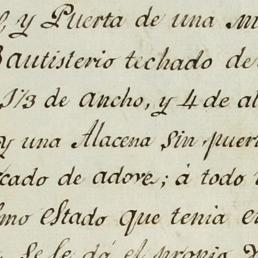 y Puerta de una
Bautisterio techado de
1/3 de ancho, y 4 de al
y una Alacena sin puert
cado de adove; á todo
mo estado que tenia e
se le dá el propio